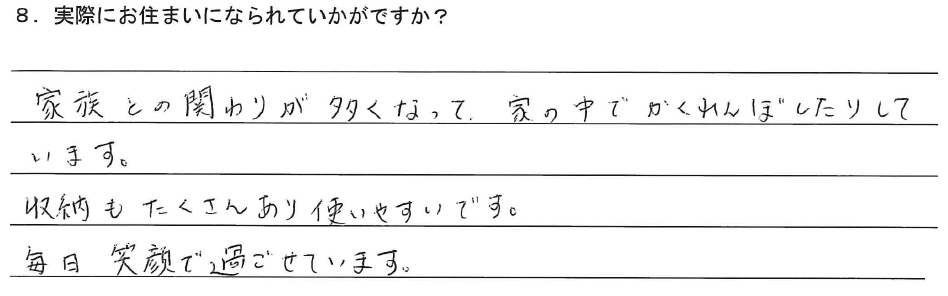 8．実際にお住まいになられていかがですか？
家族との関わりが多くなって、家の中でかくれんぼしたりして
います。
収納もたくさんあり使いやすいです。
毎日笑顔で過ごせています。